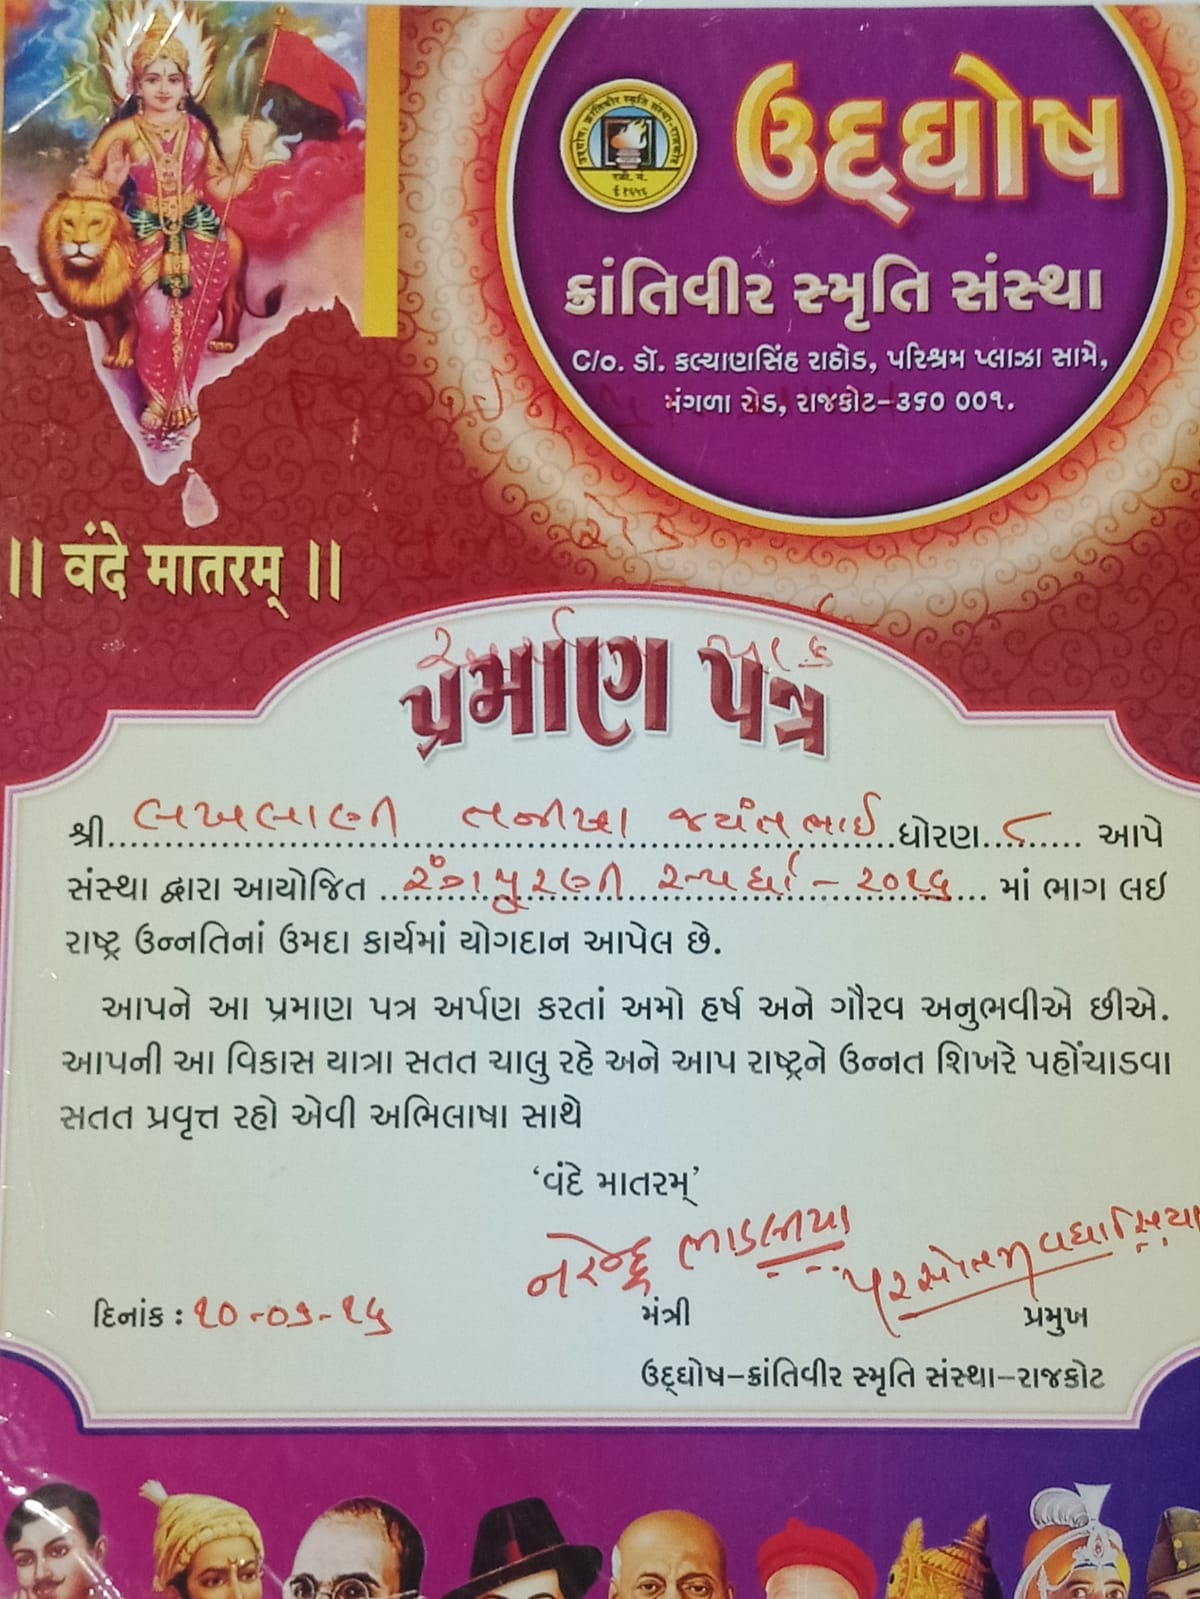 ઉદ્ઘોષ
ક્રાંતિવીર સ્મૃતિ સંસ્થા
C/o. ડૉ. કલ્યાણસિંહ રાઠોડ, પરિશ્રમ પ્લાઝા સામે,
મંગળા રોડ, રાજકોટ-૩૬૦ ૦૦૧.
|| वंदे मातरम् ||
પ્રમાણ પત્ર
શ્રી લખલાણી તનીષા જયંતભાઈ ધોરણ ૮ આપે
સંસ્થા દ્વારા આયોજિત રંગપુરણી સ્પર્ધા - ૨૦૧૬ માં ભાગ લઇ
રાષ્ટ્ર ઉન્નતિનાં ઉમદા કાર્યમાં યોગદાન આપેલ છે.
આપને આ પ્રમાણ પત્ર અર્પણ કરતાં અમો હર્ષ અને ગૌરવ અનુભવીએ છીએ.
આપની આ વિકાસ યાત્રા સતત ચાલુ રહે અને આપ રાષ્ટ્રને ઉન્નત શિખરે પહોંચાડવા
સતત પ્રવૃત્ત રહો એવી અભિલાષા સાથે
‘વંદે માતરમ્’
નરેન્દ્ર ભાડલીયા
પરસોતમ વઘાસિયા
દિનાંક : ૧૦-૦૩-૧૬
મંત્રી પ્રમુખ
ઉદ્ઘોષ-ક્રાંતિવીર સ્મૃતિ સંસ્થા-રાજકોટ